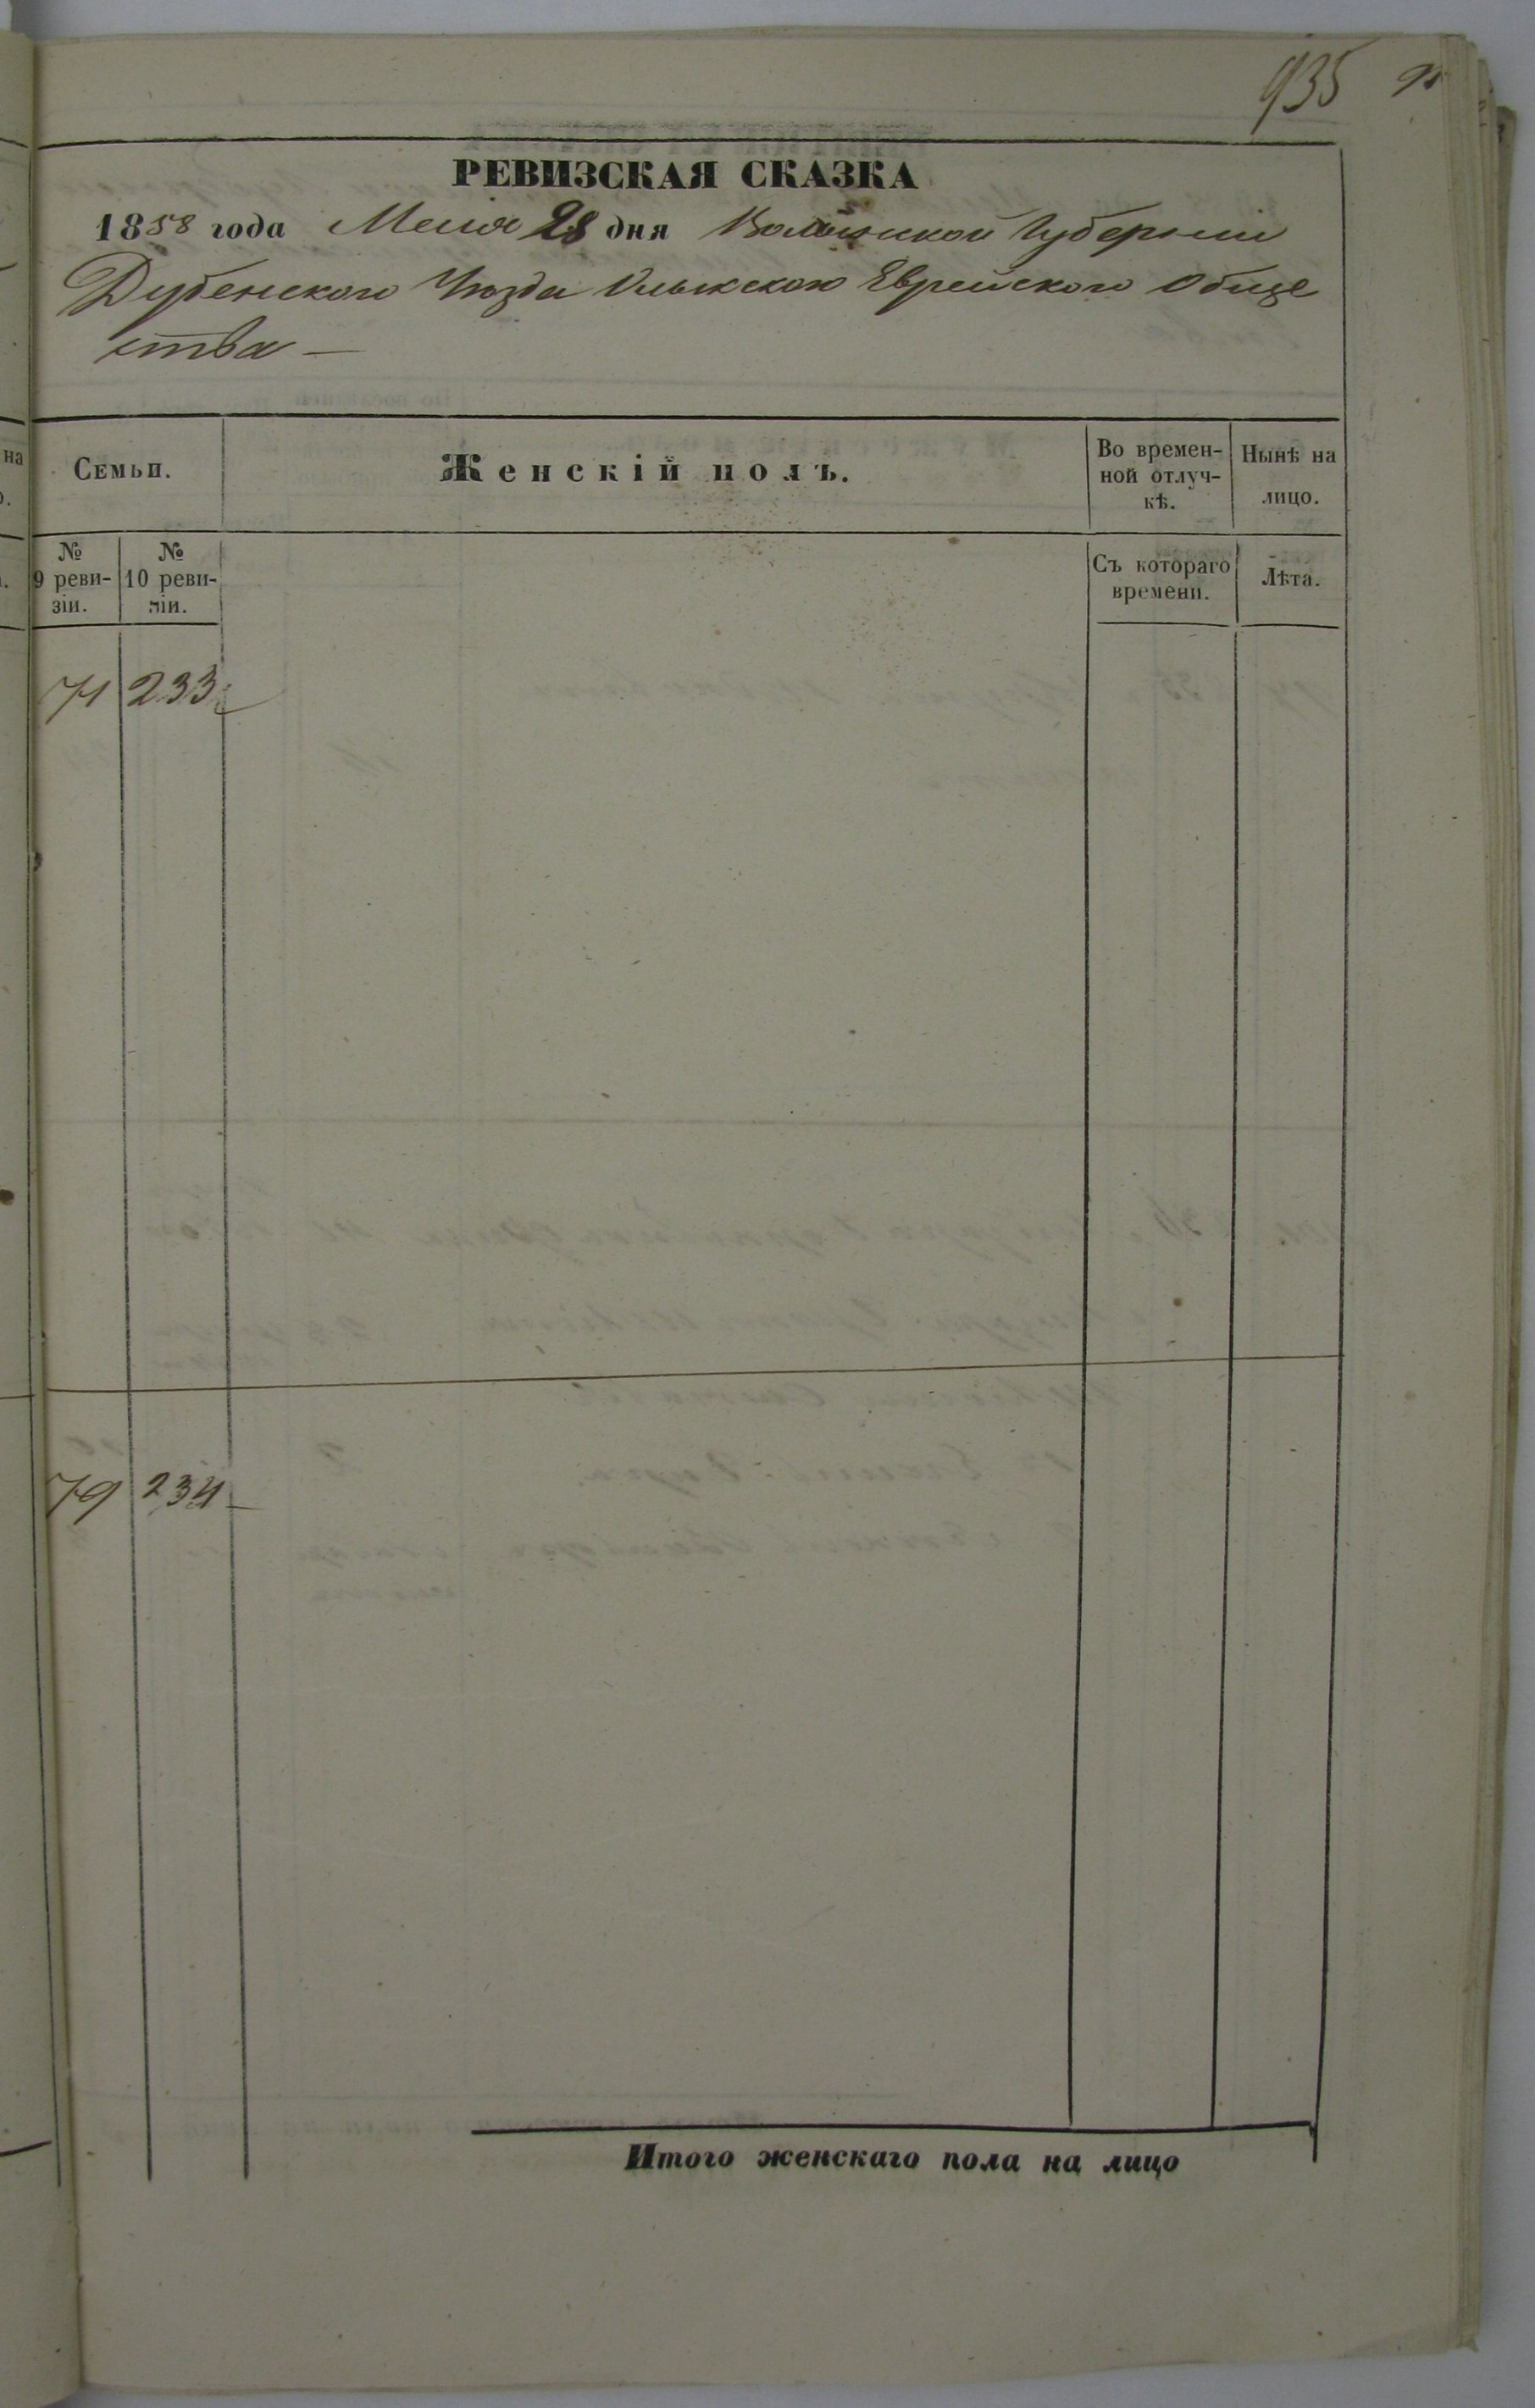 935
РЕВИЗСКАЯ СКАЗКА
1858 года Маия 28 дня Волынской Губерніи
Дубенского Уюзда Олыкского Еврейского Обще
ства —
на
Семьи.
Женскій полъ.
Во времен-
ной отлуч-
кѣ.
Нынѣ на
лицо.
№
9 реви-
зіи.
№
10 реви-
зіи.
Съ котораго
времени.
Лѣта.
71 233
79 234
Итого женскаго пола на лицо